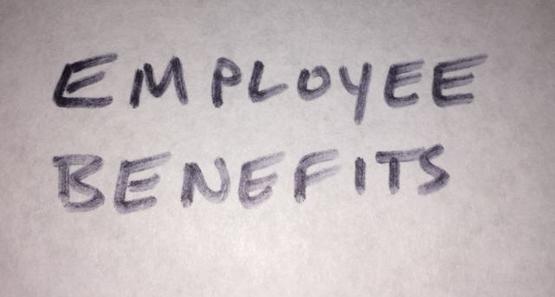 EMPLOYEE
BENEFITS